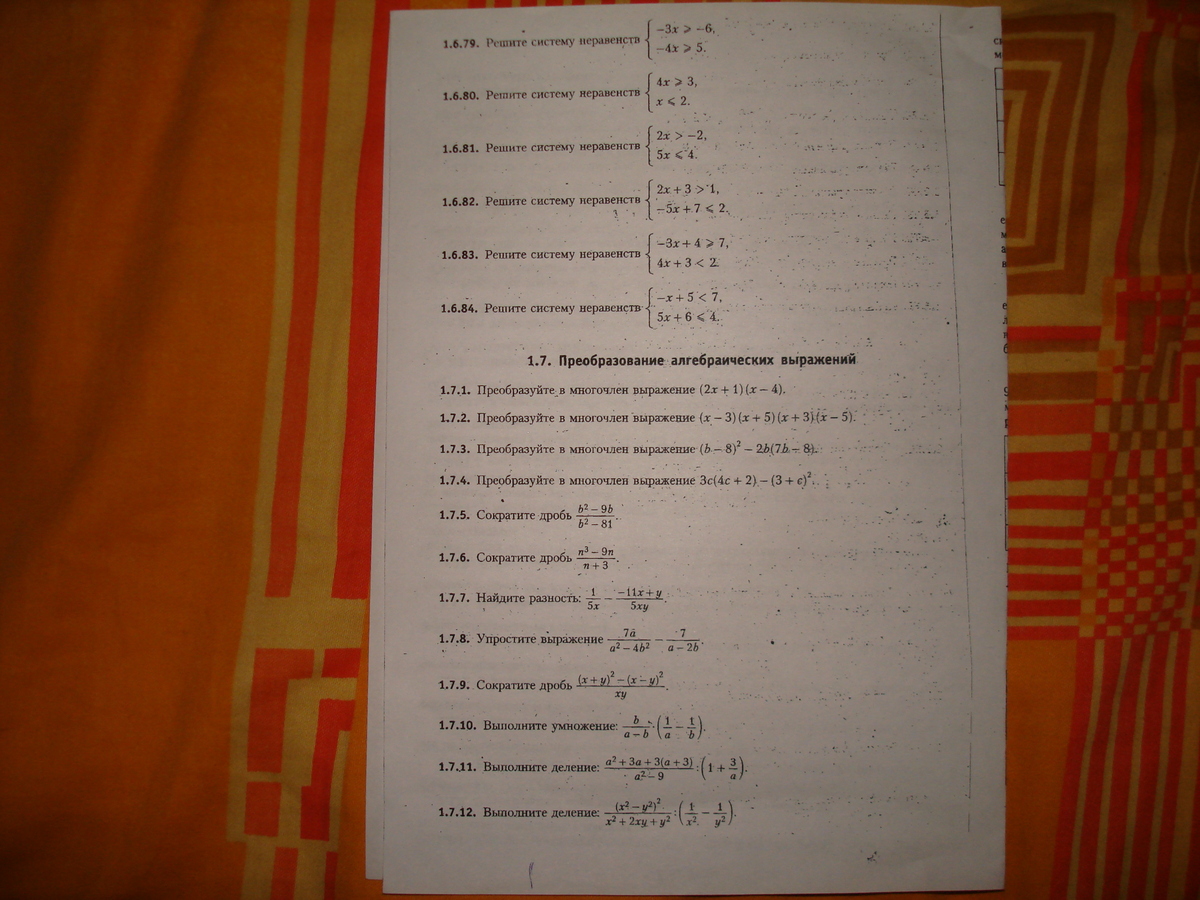 1.6.79. Решите систему неравенств { −3x ⩾ −6,
−4x ⩾ 5.
1.6.80. Решите систему неравенств { 4x ⩾ 3,
x ⩽ 2.
1.6.81. Решите систему неравенств { 2x > −2,
5x ⩽ 4.
1.6.82. Решите систему неравенств { 2x + 3 > 1,
−5x + 7 ⩽ 2.
1.6.83. Решите систему неравенств { −3x + 4 ⩾ 7,
4x + 3 < 2.
1.6.84. Решите систему неравенств { −x + 5 < 7,
5x + 6 ⩽ 4.
1.7. Преобразование алгебраических выражений
1.7.1. Преобразуйте в многочлен выражение (2x + 1)(x − 4).
1.7.2. Преобразуйте в многочлен выражение (x − 3)(x + 5)(x + 3)(x − 5).
1.7.3. Преобразуйте в многочлен выражение (b − 8)² − 2b(7b − 8).
1.7.4. Преобразуйте в многочлен выражение 3c(4c + 2) − (3 + c)².
1.7.5. Сократите дробь (b² − 9b)/(b² − 81).
1.7.6. Сократите дробь (n³ − 9n)/(n + 3).
1.7.7. Найдите разность: 1/(5x) − (−11x + y)/(5xy).
1.7.8. Упростите выражение 7a/(a² − 4b²) − 7/(a − 2b).
1.7.9. Сократите дробь ((x + y)² − (x − y)²)/(xy).
1.7.10. Выполните умножение: b/(a − b) · (1/a − 1/b).
1.7.11. Выполните деление: (a² + 3a + 3(a + 3))/(a² − 9) : (1 + 3/a).
1.7.12. Выполните деление: (x² − y²)²/(x² + 2xy + y²) : (1/x² − 1/y²).